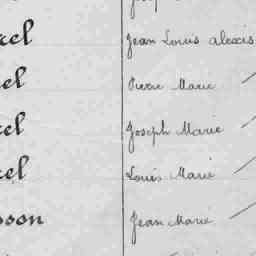 rel Jean Louis alexis
el Pierre Marie
rel Joseph Marie
rel Louis Marie
sson Jean Marie